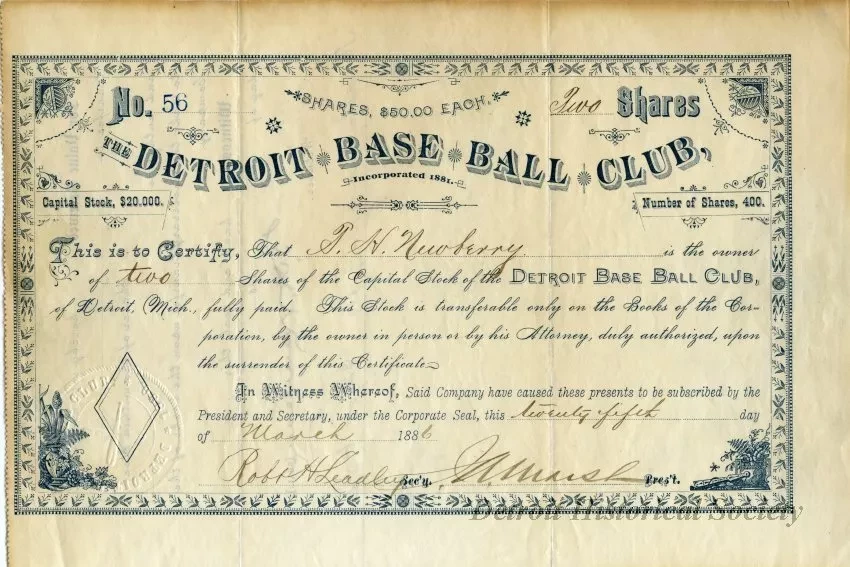 SHARES, $50.00 EACH,
No. 56
Two Shares
THE DETROIT BASE BALL CLUB,
Incorporated 1881.
Capital Stock, $20.000.
Number of Shares, 400.
This is to Certify, That T. H. Newberry is the owner
of two Shares of the Capital Stock of the DETROIT BASE BALL CLUB,
of Detroit, Mich., fully paid. This Stock is transferable only on the Books of the Cor-
poration, by the owner in person or by his Attorney, duly authorized, upon
the surrender of this Certificate
In Witness Whereof, Said Company have caused these presents to be subscribed by the
President and Secretary, under the Corporate Seal, this twenty fifth day
of March 1886
Robt H Leadley Sec'y. J. A. Marsh Pres't.
Detroit Historical Society